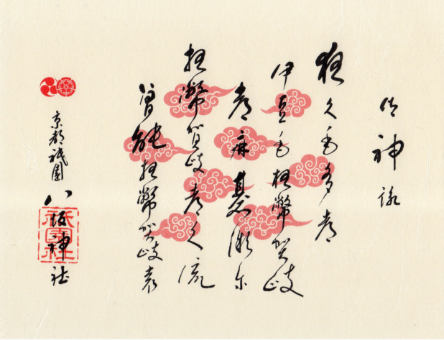 御神詠
夜久毛多都
伊豆毛夜幣賀岐
都麻碁微尓
夜幣賀岐都久流
曽能夜幣賀岐袁
京都祇園 八坂神社